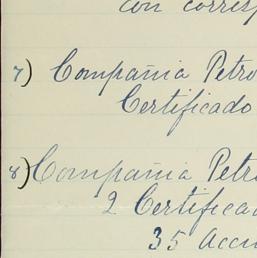 con corresp
7) Compañia Petro
Certificado
8) Compañia Petr
2 Certifica
35 Acci